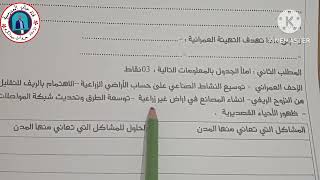 KINEMASTER
تهدف التهيئة العمرانية :
المطلب الثاني : املأ الجدول بالمعلومات التالية . 03 نقاط
الزحف العمراني - توسيع النشاط الصناعي على حساب الأراضي الزراعية - الاهتمام بالريف للتقليل
من النزوح الريفي - انشاء المصانع في اراض غير زراعية - توسعة الطرق وتحديث شبكة المواصلات
- ظهور الأحياء القصديرية .
المشاكل التي تعاني منها المدن
الحلول للمشاكل التي تعاني منها المدن